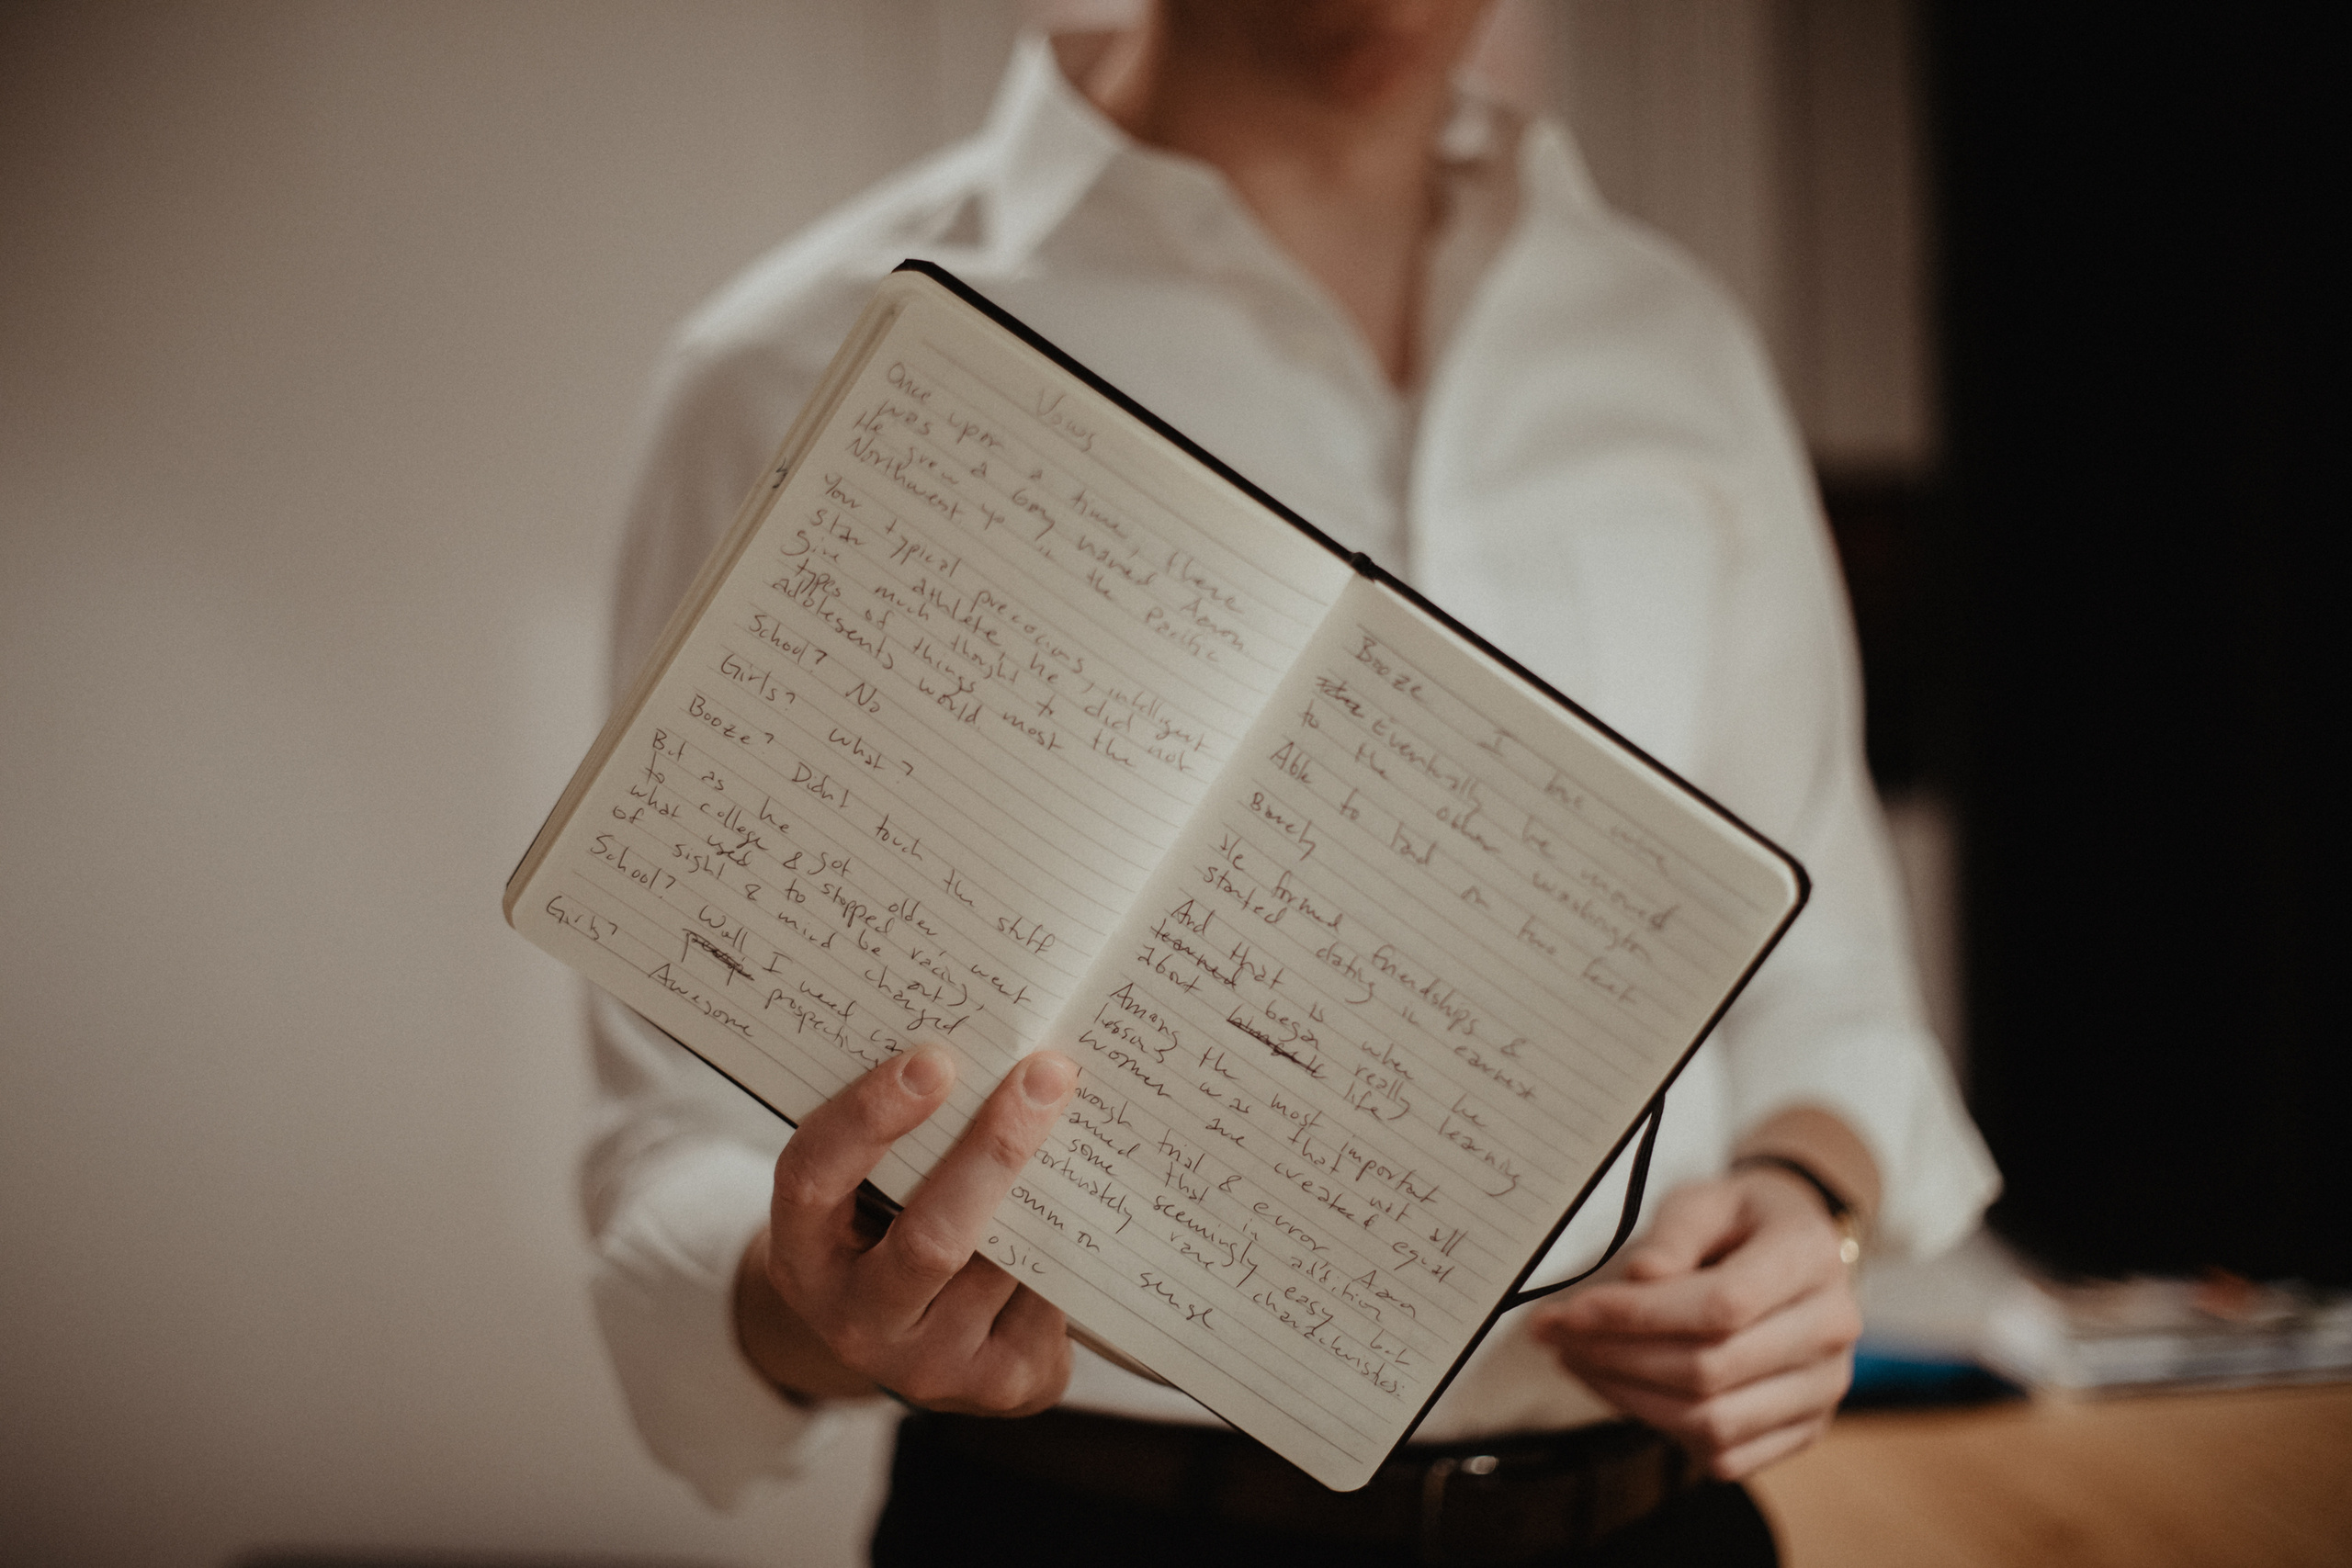 Vows
Once upon a time, there
was a boy named Aaron
He grew up in the Pacific
Northwest.
Your typical precocious, intelligent
star athlete, he did not
give much thought to the
types of things most
adolesents would.
School? No
Girls? What?
Booze? Didn't touch the stuff
But as he got older, went
to college & stopped racing,
what used to be out
of sight & mind changed
School? Well, I need
prospective
Girls? Awesome
Booze I like wine
Eventually he moved
to the other Washington
Able to land on two feet
Barely
He formed friendships &
started dating in earnest
And that is when he
learned began really learning
about himself life
Among the most important
lessons was that not all
women are created equal
hrough trial & error Aaron
arned that in addition
some seemingly easy but
ortunately rare characteristics:
omm on sense
ogic